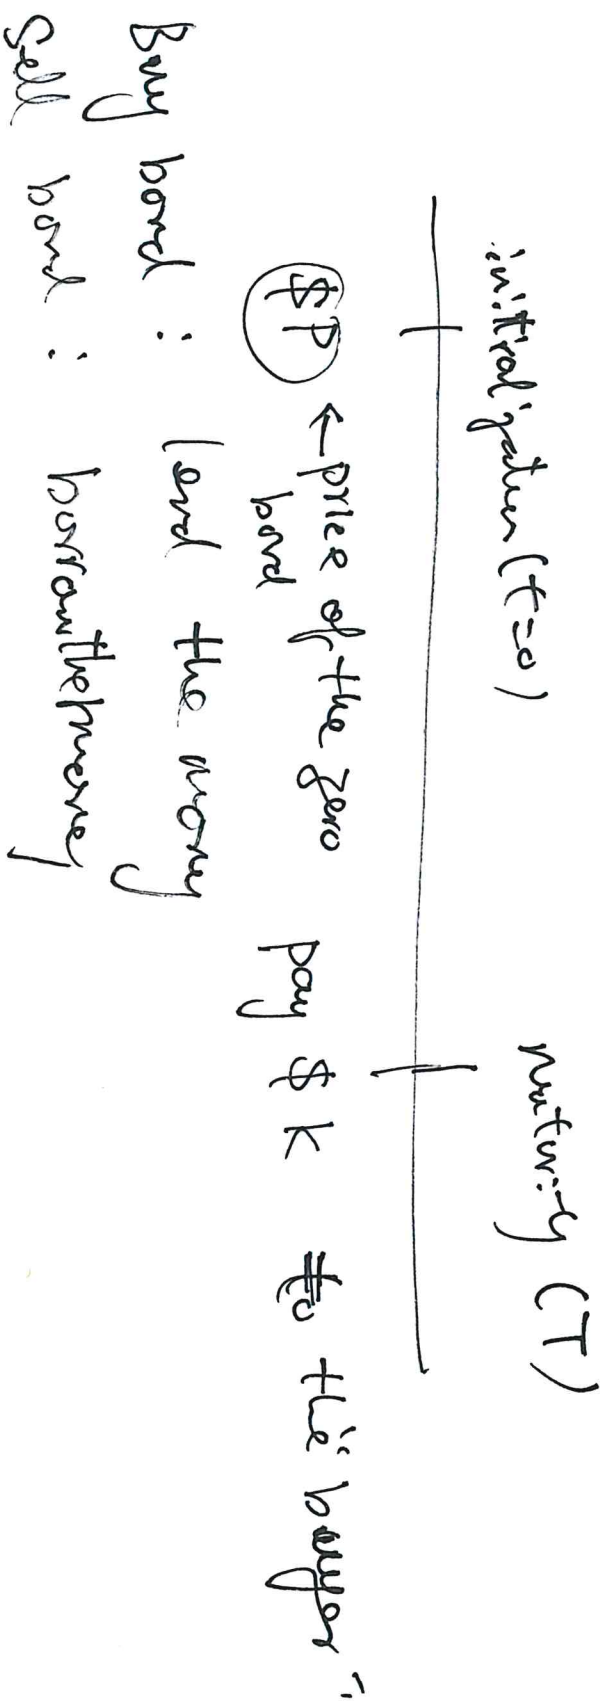 initialization (t=0)
maturity (T)
$P ← price of the zero
bond
pay $ K to the "buyer"
Buy bond : lend the money
Sell bond : borrow the money